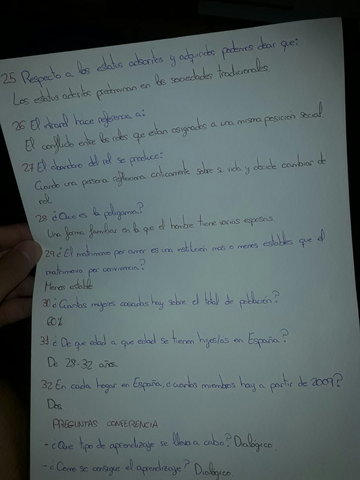 25 Respecto a los estatus adscritos y adquiridos podemos decir que:
Los estatus adscritos predominan en las sociedades tradicionales.
26 El intrarol hace referencia a:
El conflicto entre los roles que estan asignados a una misma posición social
27 El abandono del rol se produce:
Cuando una persona reflexiona criticamente sobre su vida y decide cambiar de
rol.
28 ¿Que es la poligamia?
Una forma familiar en la que el hombre tiene varias esposas.
29 ¿El matrimonio por amor es una institucion mas o menos estable que el
matrimonio por convivencia?
Menos estable
30 ¿Cuantas mujeres casadas hay sobre el total de poblacion?
60%
31 ¿De que edad a que edad se tienen hijos/as en España?
De 28-32 años.
32 En cada hogar en España, ¿cuantos miembros hay a partir de 2009?
Dos
PREGUNTAS CONFERENCIA
- ¿Que tipo de aprendizaje se lleva a cabo? Dialogico
- ¿Como se consigue el aprendizaje? Dialogico.